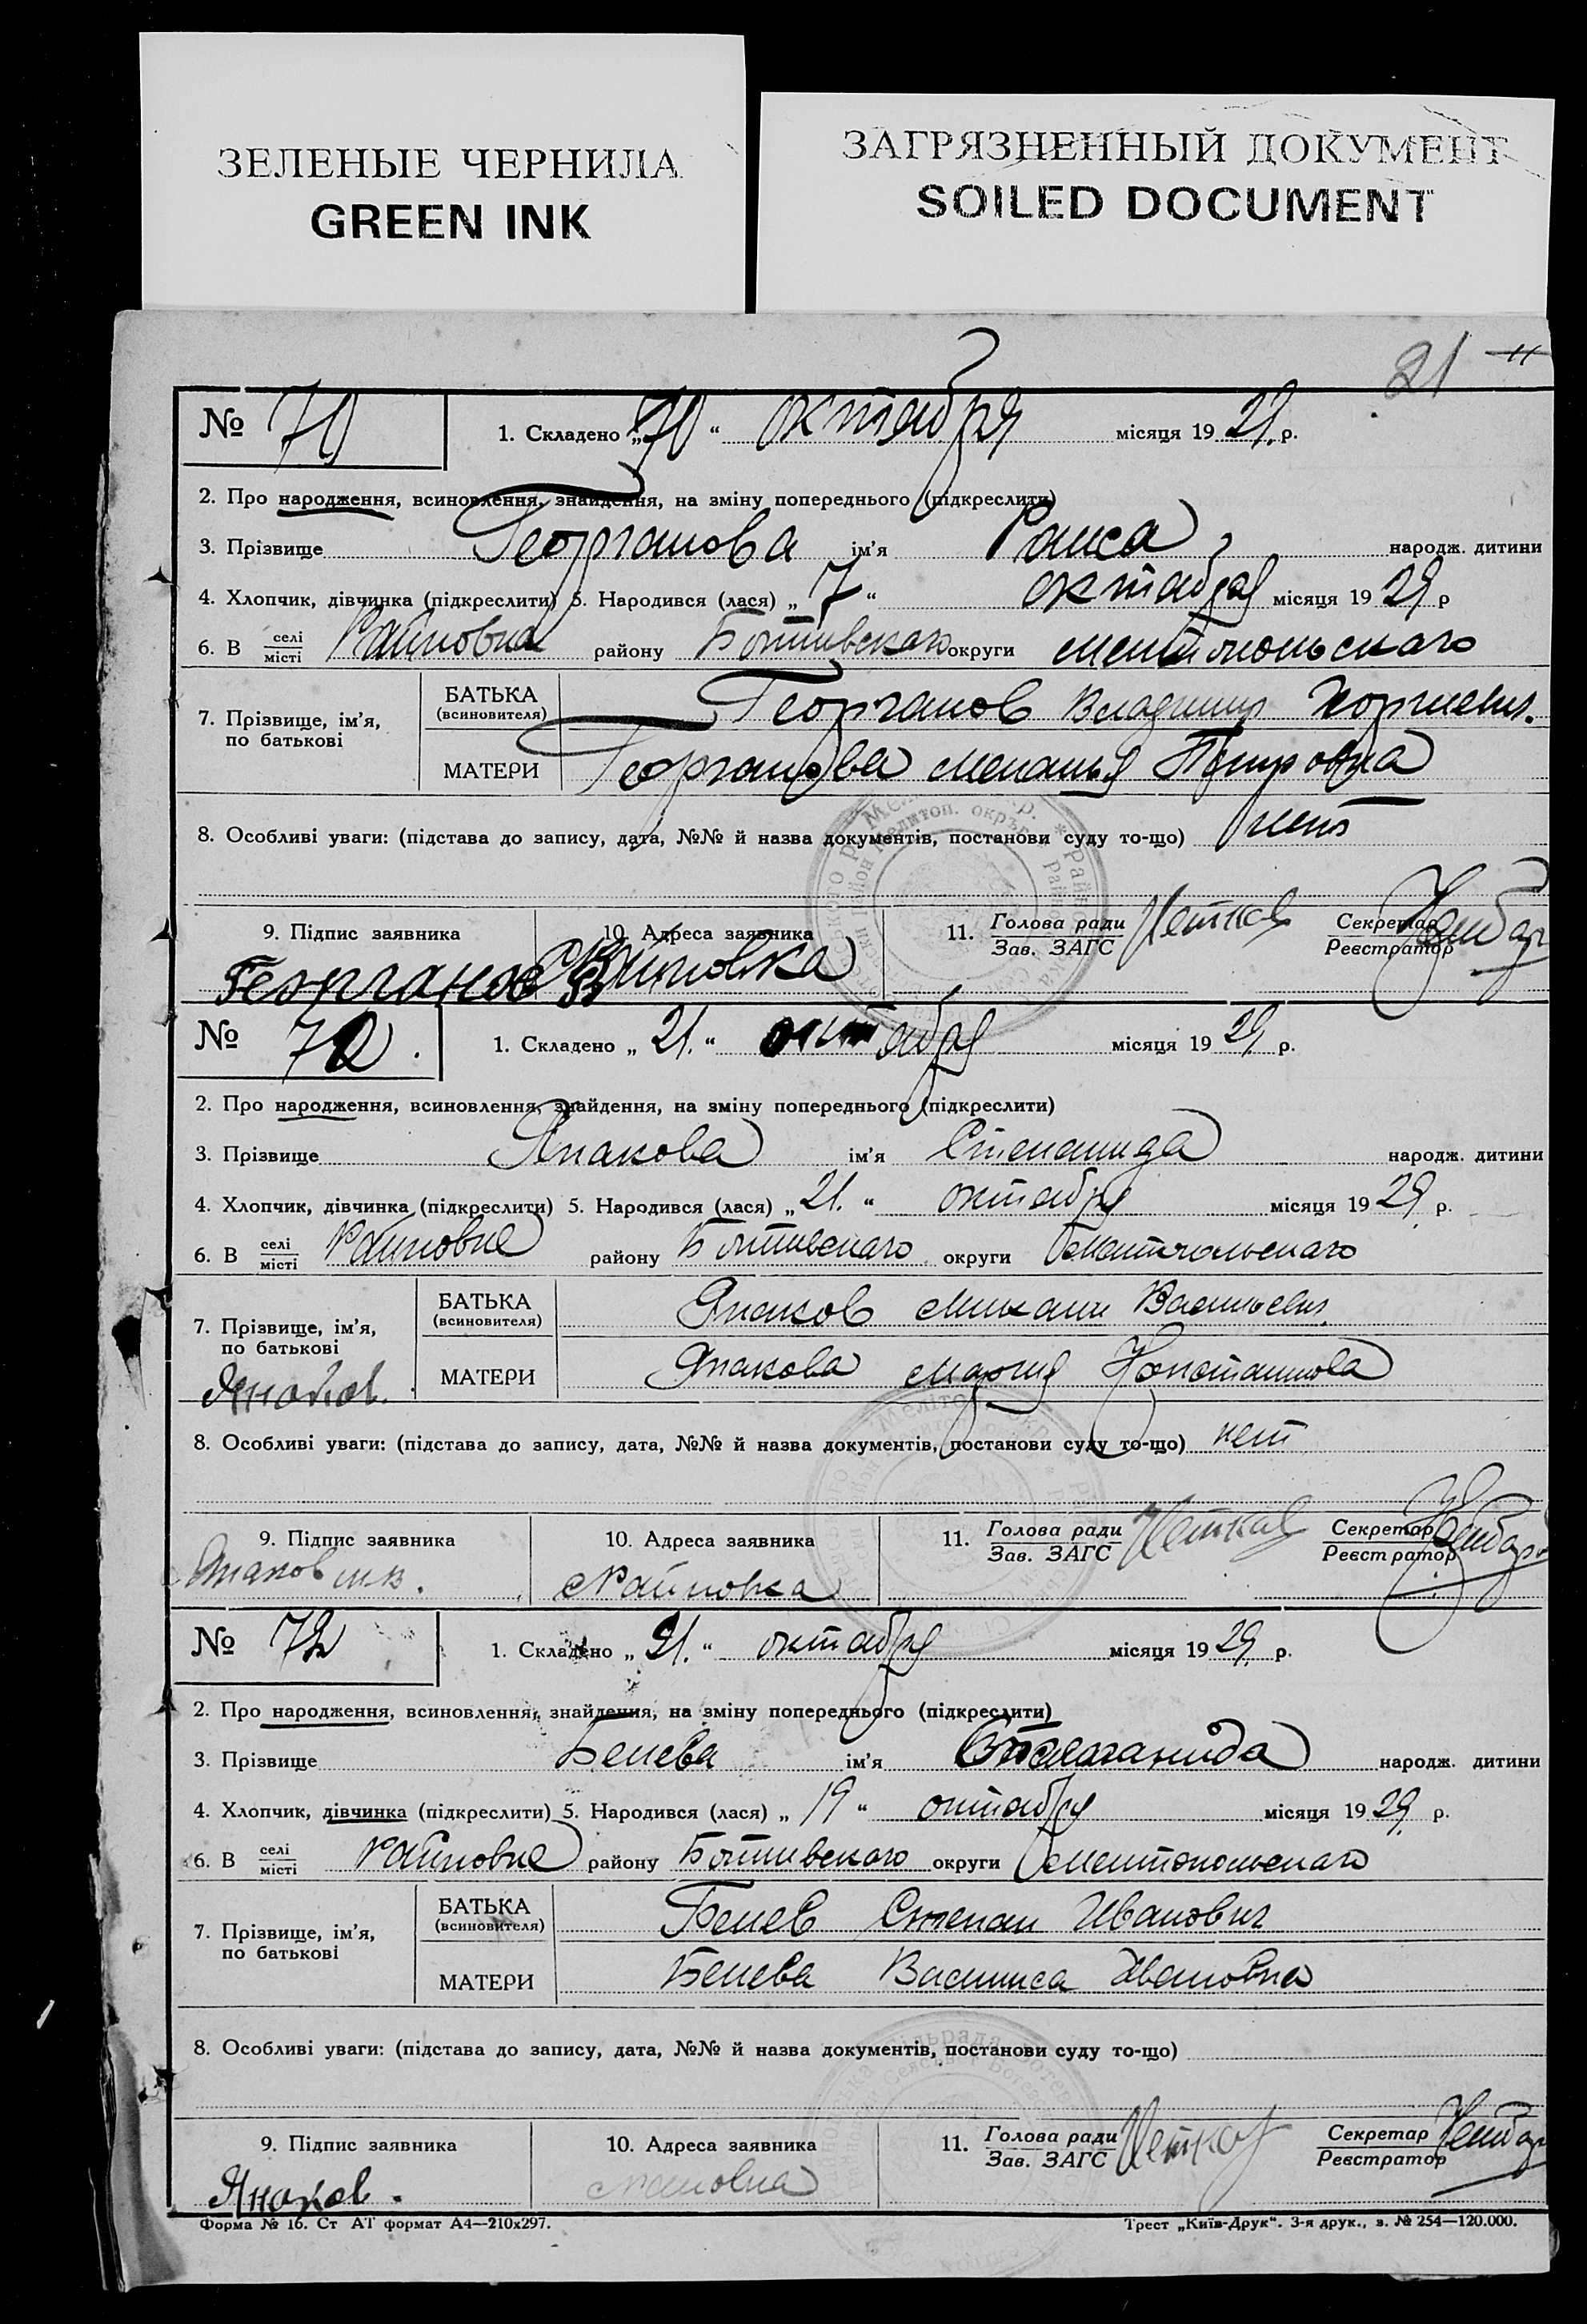 ЗЕЛЕНЫЕ ЧЕРНИЛА
GREEN INK
ЗАГРЯЗНЕННЫЙ ДОКУМЕНТ
SOILED DOCUMENT
21
№ 70 1. Складено „ “ октября місяця 19 29. р.
2. Про народження, всиновлення, знайдення, на зміну попереднього (підкреслити)
3. Прізвище Георганова ім'я Раиса народж. дитини
4. Хлопчик, дівчинка (підкреслити) 5. Народився (лася) „ 7 “ октября місяця 19 29 р
6. В селі/місті Райновка району Ботивскаго округи мелитопольскаго
7. Прізвище, ім'я, по батькові
БАТЬКА (всиновителя) Георганов Владимир
МАТЕРИ Георганова Меланья Петровна
8. Особливі уваги: (підстава до запису, дата, №№ й назва документів, постанови суду то-що) нет
9. Підпис заявника 10. Адреса заявника 11. Голова ради/Зав. ЗАГС Секретар/Реєстратор
Георганов В Райновка
№ 1. Складено „ 21. “ октября місяця 19 29. р.
2. Про народження, всиновлення, знайдення, на зміну попереднього (підкреслити)
3. Прізвище Янакова ім'я Степанида народж. дитини
4. Хлопчик, дівчинка (підкреслити) 5. Народився (лася) „ 21. “ октября місяця 19 29 р.
6. В селі/місті Райновке району Ботивскаго округи мелитопольскаго
7. Прізвище, ім'я, по батькові
БАТЬКА (всиновителя) Янаков Михаил Васильевич
Янаков.
МАТЕРИ Янакова Мария Константинова
8. Особливі уваги: (підстава до запису, дата, №№ й назва документів, постанови суду то-що) нет
9. Підпис заявника 10. Адреса заявника 11. Голова ради/Зав. ЗАГС Секретар/Реєстратор
Янаков м.в. Райновка
№ 72 1. Складено „ 21. “ октября місяця 19 29. р.
2. Про народження, всиновлення, знайдення, на зміну попереднього (підкреслити)
3. Прізвище Бенева ім'я народж. дитини
4. Хлопчик, дівчинка (підкреслити) 5. Народився (лася) „ 19 “ октября місяця 19 29. р.
6. В селі/місті Райновке району Ботивскаго округи мелитопольскаго
7. Прізвище, ім'я, по батькові
БАТЬКА (всиновителя) Бенев Степан Иванович
МАТЕРИ Бенева Василиса Ивановна
8. Особливі уваги: (підстава до запису, дата, №№ й назва документів, постанови суду то-що)
9. Підпис заявника 10. Адреса заявника 11. Голова ради/Зав. ЗАГС Секретар/Реєстратор
Янаков. Райновка
Форма № 16. Ст АТ формат А4—210х297. Трест „Київ-Друк“. 3-я друк., з. № 254—120.000.